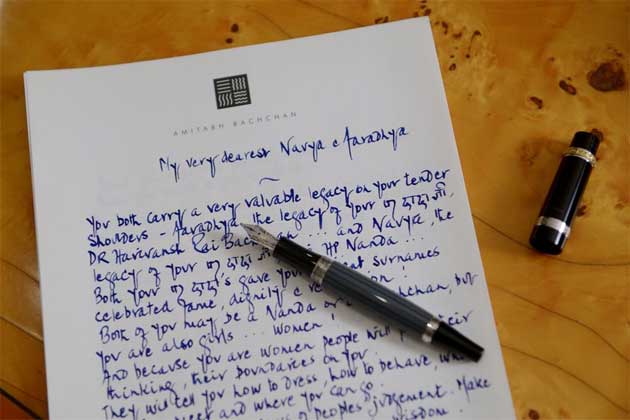 AMITABH BACHCHAN
My very dearest Navya & Aaradhya
You both carry a very valuable legacy on your tender
shoulders - Aaradhya, the legacy of your
DR Harivansh Rai Bachchan ... and Navya, the
legacy of your HP Nanda ...
Both your दादाजी's gave you surnames
celebrated fame, dignity & !
Both of you may be a Nanda or a Bachchan, but
you are also girls ... women !
And because you are women people will their
thinking, their boundaries on you.
They will tell you how to dress, how to behave,
meet and where you can go.
of people's judgement. Make
wisdom